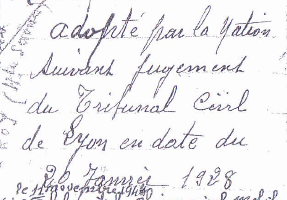 adopté par la Nation
suivant jugement
du Tribunal Civil
de Lyon en date du
20 Janvier 1928
le 11 novembre 19